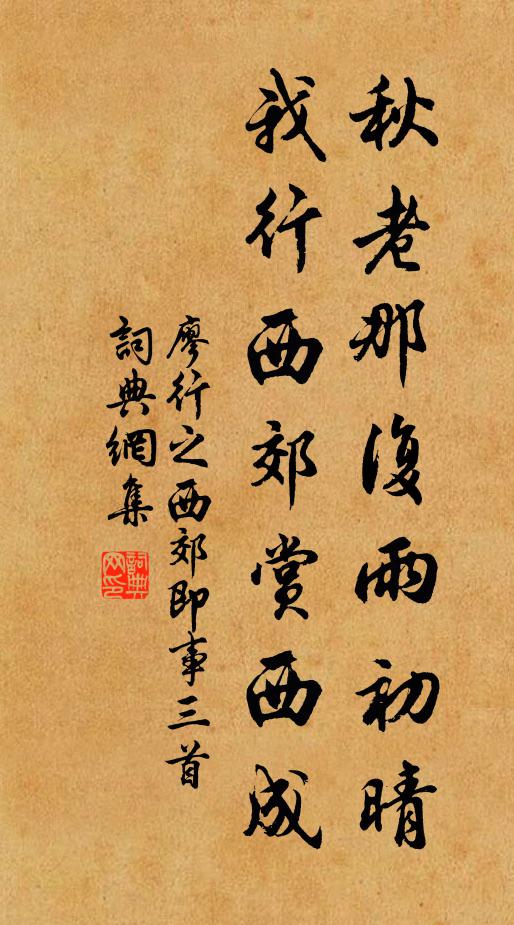 秋老那復雨初晴
我行西郊賞西成
廖行之西郊即事三首
詞典網集
詞典
网印